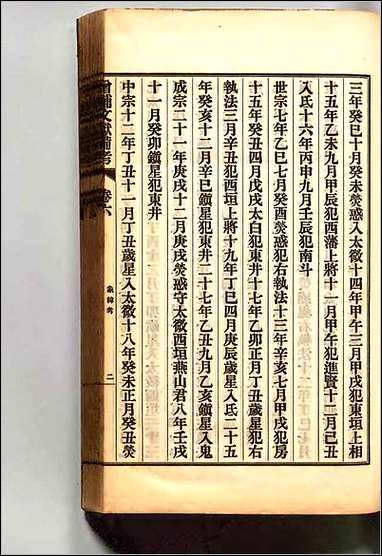 三年癸巳十月癸未熒惑入太微十四年甲午三月甲戌犯東垣上相
十五年乙未九月甲辰犯西藩上將十一月甲午犯進賢十二月己丑
入氐十六年丙申九月壬辰犯南斗
世宗七年乙巳七月癸酉熒惑犯右執法十三年辛亥七月甲戌犯房
十五年癸丑四月戊戌太白犯東井十七年乙卯正月丁丑歲星犯右
執法三月辛丑犯西垣上將十九年丁巳四月庚辰歲星入氐二十五
年癸亥十二月辛巳鎭星犯東井二十七年乙丑九月乙亥鎭星入鬼
成宗二十一年庚戌十二月庚戌熒惑守太微西垣燕山君八年壬戌
十一月癸卯鎭星犯東井
中宗十二年丁丑十一月丁丑歲星入太微十八年癸未正月癸丑熒
增補文獻備考
卷六
象緯考
二